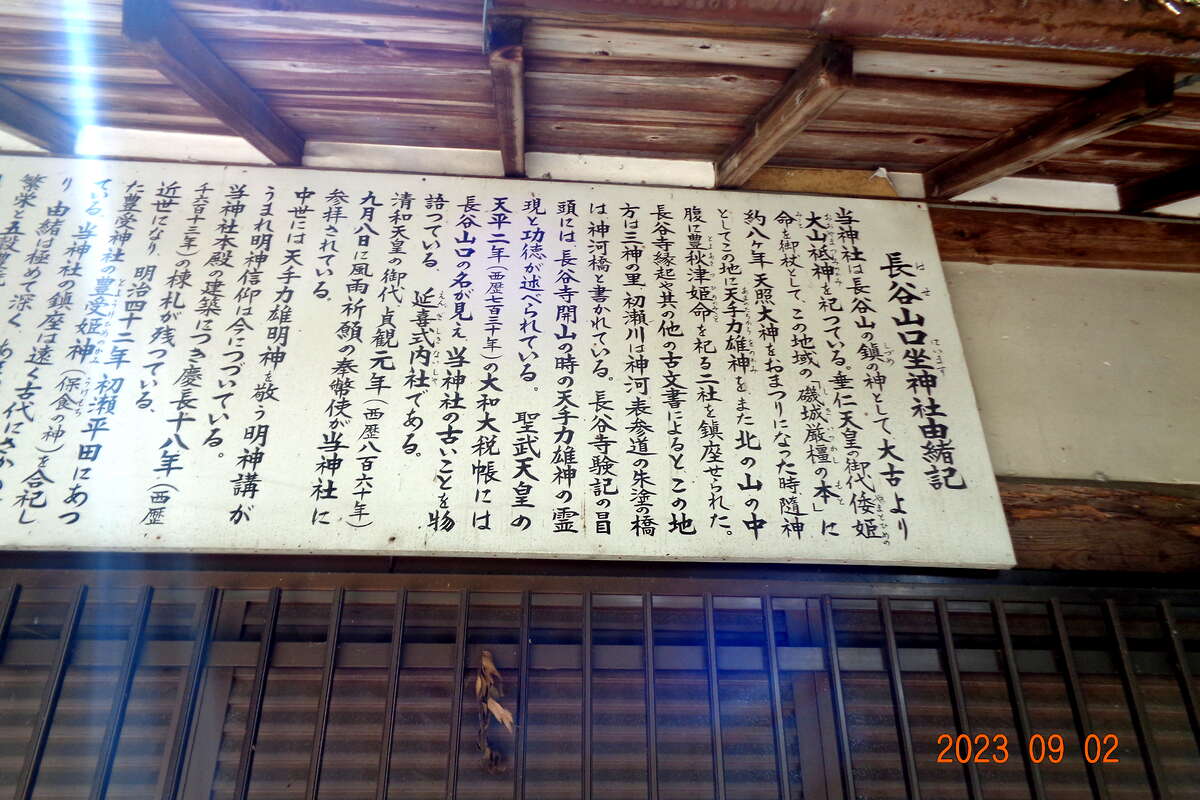 長谷山口坐神社由緒記
当神社は長谷山の鎮の神として、大古より
大山祇神を祀つている。垂仁天皇の御代倭姫
命を御杖として、この地域の「磯城厳橿の本」に
約八ヶ年天照大神をおまつりになった時、随神
としてこの地に天手力雄神を、また北の山の中
腹に豊秋津姫命を祀る二社を鎮座せられた。
長谷寺縁起や其の他の古文書によると、この地
方は三神の里、初瀬川は神河、表参道の朱塗の橋
は神河橋と書かれている。長谷寺験記の冒
頭には、長谷寺開山の時の天手力雄神の霊
現と功徳が述べられている。聖武天皇の
天平二年(西歴七百三十年)の大和大税帳には
長谷山口の名が見え、当神社の古いことを物
語つている。延喜式内社である。
清和天皇の御代、貞観元年(西歴八百六十年)
九月八日に風雨祈願の奉幣使が当神社に
参拝されている。
中世には天手力雄明神を敬う明神講が
うまれ明神信仰は今につづいている。
当神社本殿の建築につき慶長十八年(西歴
千六百十三年)の棟札が残つている。
近世になり、明治四十二年初瀬平田にあつ
た豊受神社の豊受姫神(保食の神)を合祀し
ている。当神社の鎮座は遠く古代にさか
り、由緒は極めて深く、
繁栄と五穀豊
2023 09 02